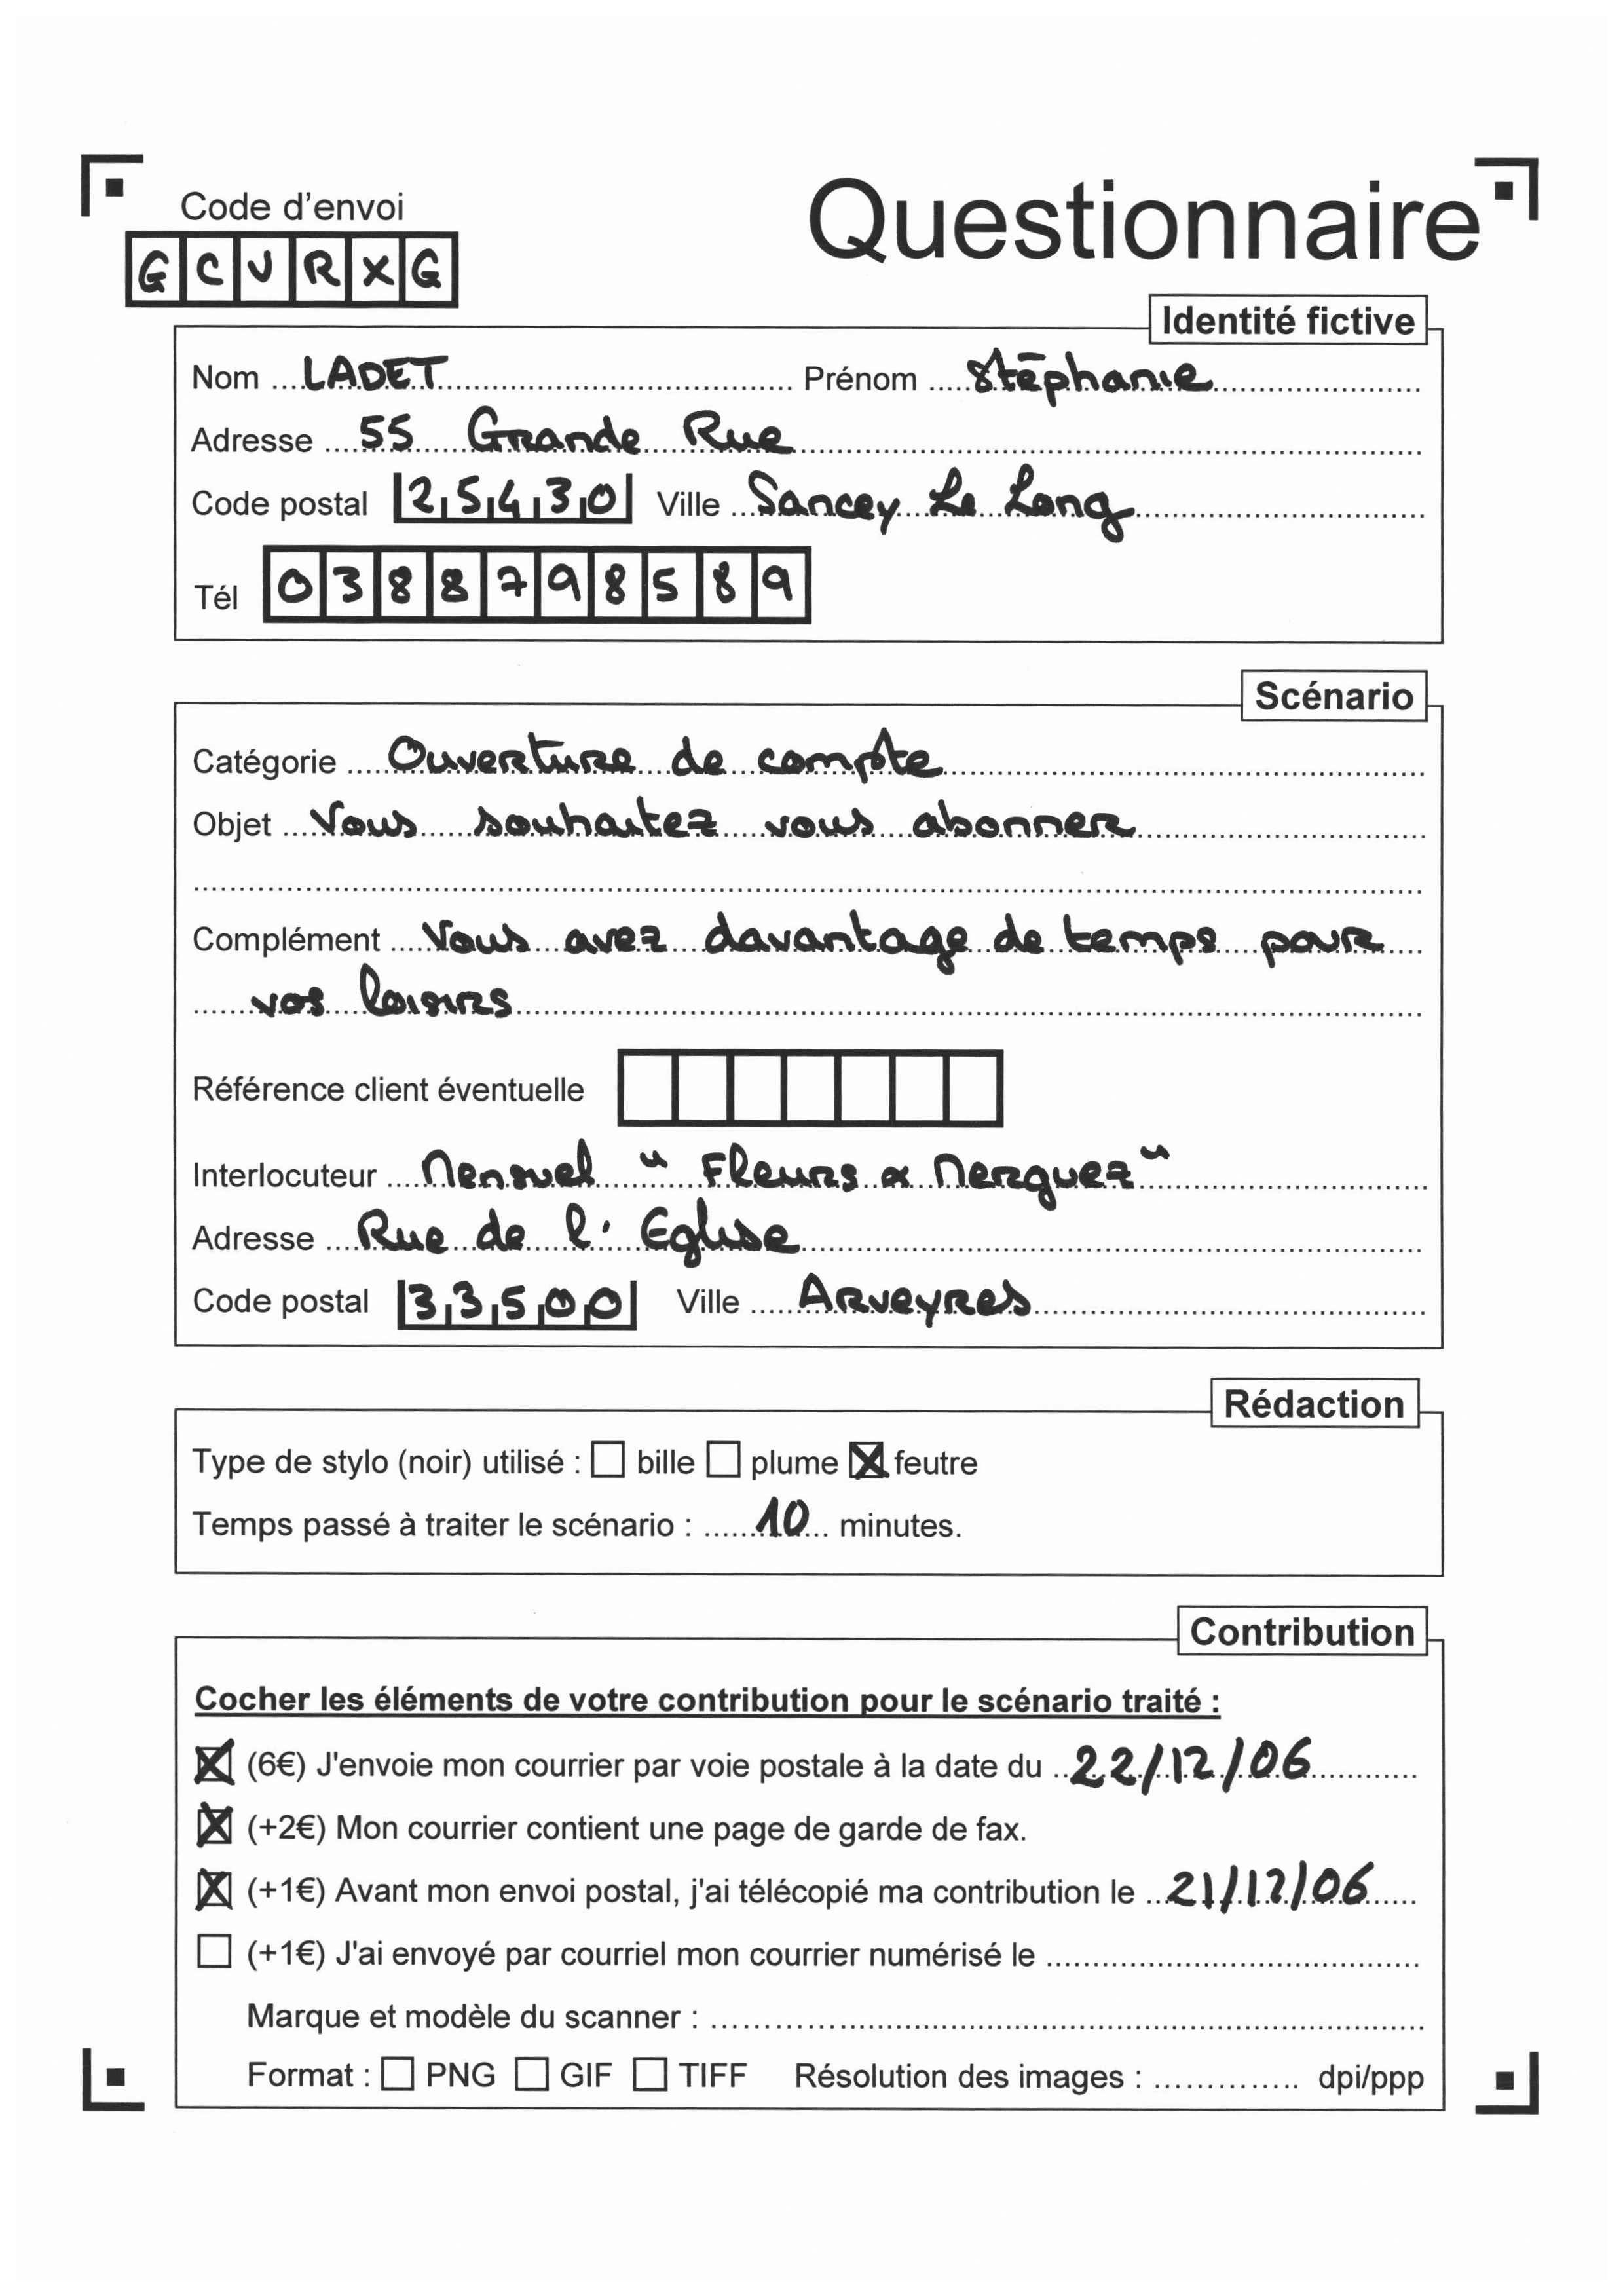 Code d'envoi
Questionnaire
GCVRXG
Identité fictive
Nom LADET Prénom Stéphanie
Adresse 55 Grande Rue
Code postal 25430 Ville Sancey Le Long
Tél 0388798589
Scénario
Catégorie Ouverture de compte
Objet Vous souhaitez vous abonner
Complément Vous avez davantage de temps pour
vos loisirs
Référence client éventuelle
Interlocuteur Mensuel " Fleurs & Merguez "
Adresse Rue de l' Eglise
Code postal 33500 Ville Arveyres
Rédaction
Type de stylo (noir) utilisé : bille plume feutre
Temps passé à traiter le scénario : 10 minutes.
Contribution
Cocher les éléments de votre contribution pour le scénario traité :
(6€) J'envoie mon courrier par voie postale à la date du 22/12/06
(+2€) Mon courrier contient une page de garde de fax.
(+1€) Avant mon envoi postal, j'ai télécopié ma contribution le 21/12/06
(+1€) J'ai envoyé par courriel mon courrier numérisé le
Marque et modèle du scanner :
Format : PNG GIF TIFF Résolution des images : dpi/ppp